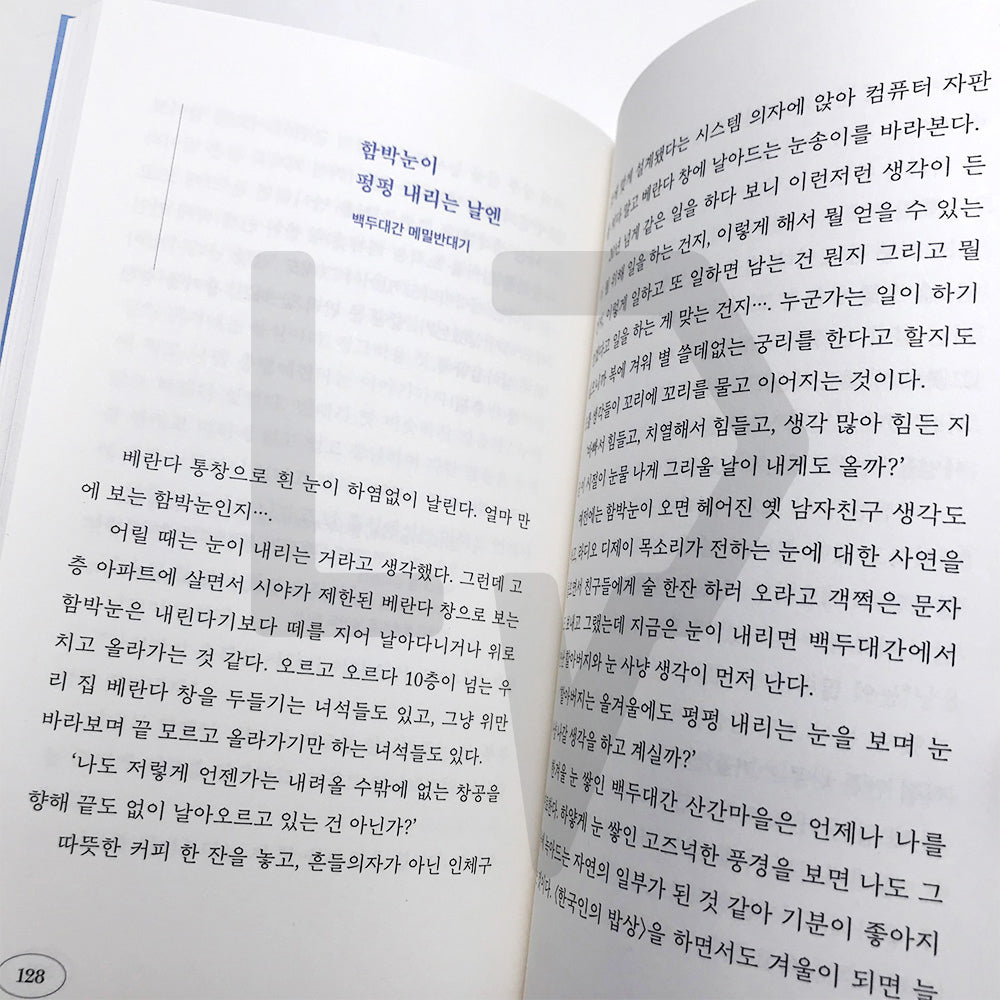 함박눈이
평평 내리는 날엔
백두대간 메밀반대기
베란다 통창으로 흰 눈이 하염없이 날린다. 얼마 만
에 보는 함박눈인지….
어릴 때는 눈이 내리는 거라고 생각했다. 그런데 고
층 아파트에 살면서 시야가 제한된 베란다 창으로 보는
함박눈은 내린다기보다 떼를 지어 날아다니거나 위로
치고 올라가는 것 같다. 오르고 오르다 10층이 넘는 우
리 집 베란다 창을 두들기는 녀석들도 있고, 그냥 위만
바라보며 끝 모르고 올라가기만 하는 녀석들도 있다.
‘나도 저렇게 언젠가는 내려올 수밖에 없는 창공을
향해 끝도 없이 날아오르고 있는 건 아닌가?’
따뜻한 커피 한 잔을 놓고, 흔들의자가 아닌 인체구
128
맞게 설계됐다는 시스템 의자에 앉아 컴퓨터 자판
말고 베란다 창에 날아드는 눈송이를 바라본다.
넘게 같은 일을 하다 보니 이런저런 생각이 든
위해 일을 하는 건지, 이렇게 해서 뭘 얻을 수 있는
이렇게 일하고 또 일하면 남는 건 뭔지 그리고 뭘
일을 하는 게 맞는 건지…. 누군가는 일이 하기
복에 겨워 별 쓸데없는 궁리를 한다고 할지도
생각들이 꼬리에 꼬리를 물고 이어지는 것이다.
힘들고, 치열해서 힘들고, 생각 많아 힘든 지
시절이 눈물 나게 그리울 날이 내게도 올까?’
함박눈이 오면 헤어진 옛 남자친구 생각도
라디오 디제이 목소리가 전하는 눈에 대한 사연을
친구들에게 술 한잔 하러 오라고 객쩍은 문자
보내고 그랬는데 지금은 눈이 내리면 백두대간에서
할아버지와 눈 사냥 생각이 먼저 난다.
할아버지는 올겨울에도 평평 내리는 눈을 보며 눈
나갈 생각을 하고 계실까?’
한겨울 눈 쌓인 백두대간 산간마을은 언제나 나를
하얗게 눈 쌓인 고즈넉한 풍경을 보면 나도 그
녹아드는 자연의 일부가 된 것 같아 기분이 좋아지
〈한국인의 밥상〉을 하면서도 겨울이 되면 늘